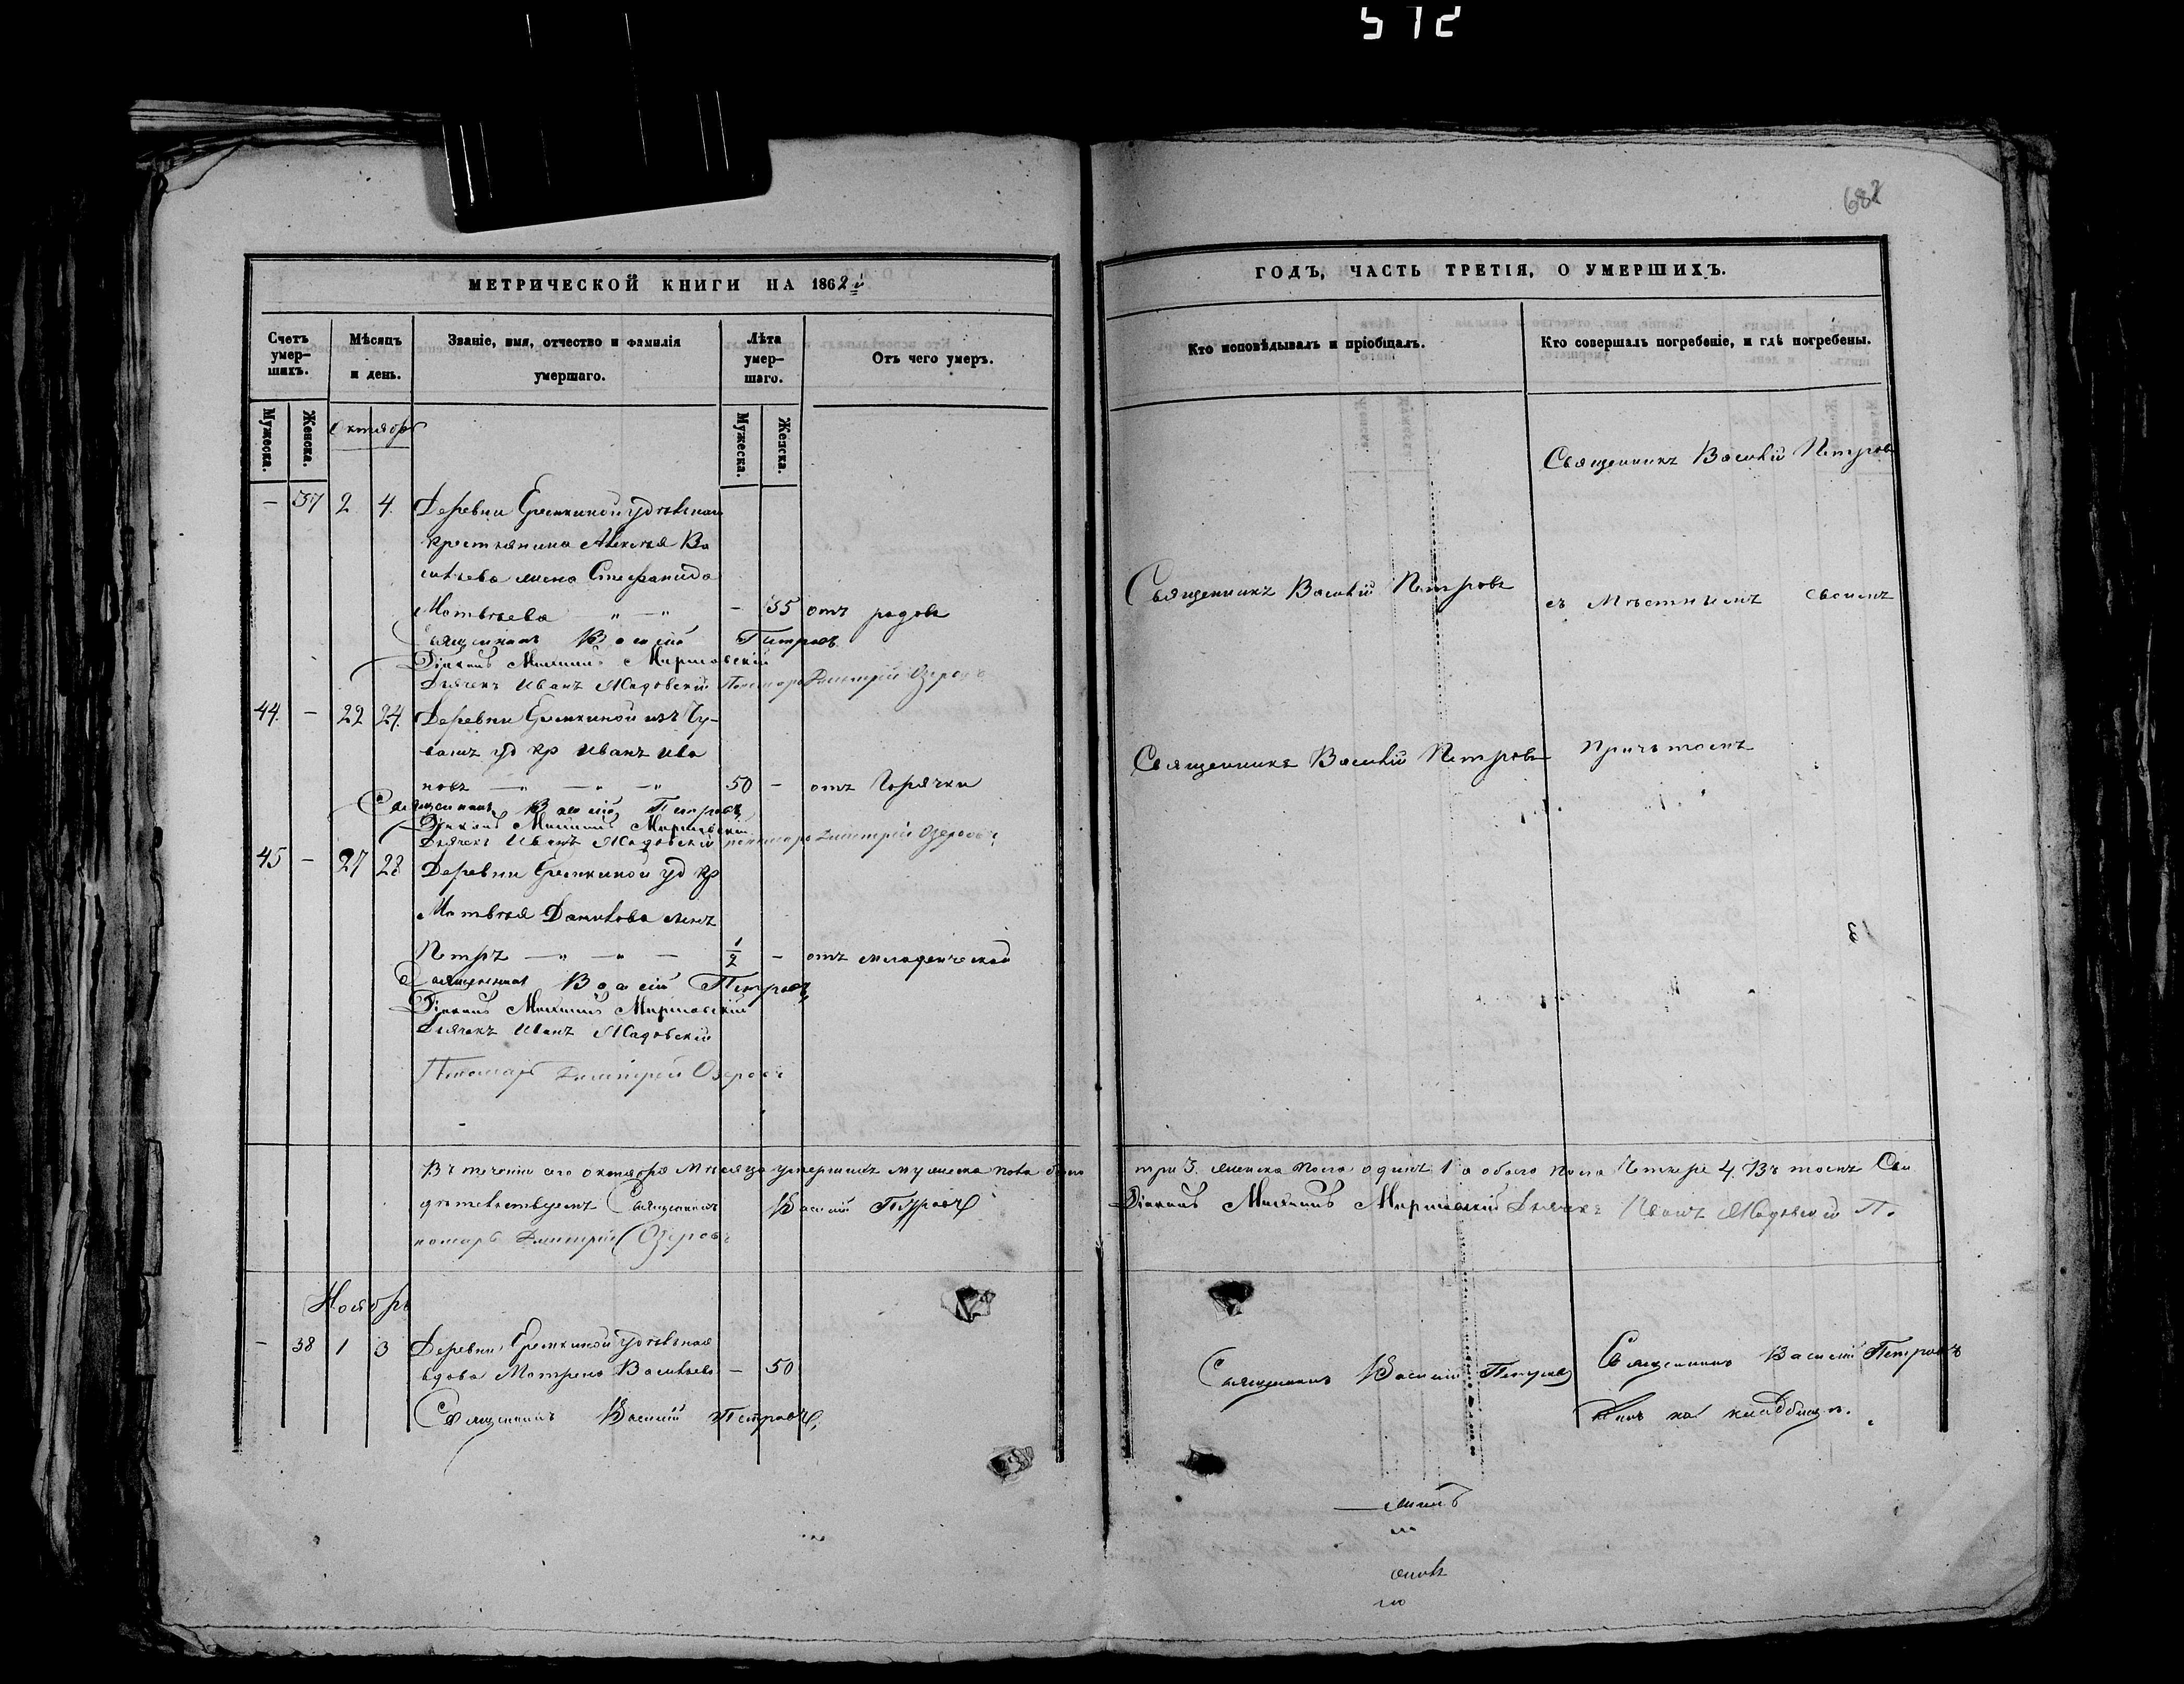 512
682
МЕТРИЧЕСКОЙ КНИГИ НА 1862й
Счетъ умер-шихъ.
Мѣсяцъ и день.
Званіе, имя, отчество и фамилія умершаго.
Лѣта умер-шаго.
Отъ чего умеръ.
Мужеска.
Женска.
Мужеска.
Женска.
Октябрь
— 37 2 4. Деревни Еремкиной удѣльнаго
крестьянина Алексѣя Ва
сильева жена Стефанида
Матвѣева — 35 отъ родовъ
Священникъ Василій Петровъ
Діаконъ Михаилъ
Дьячекъ Иванъ Жадовскій Пономарь Димитрій Озеровъ
44. — 22 24. Деревни Еремкиной изъ Чу-
вашъ уд кр Иванъ Ива
новъ 50 — отъ горячки
Священникъ Василій Петровъ
Діаконъ Михаилъ
Дьячекъ Иванъ Жадовскій пономарь Димитрій Озеровъ
45 — 27 28 Деревни Еремкиной уд кр
Матвѣя Данилова сынъ
Петръ 1/2 — отъ младенческой
Священникъ Василій Петровъ
Діаконъ Михаилъ
Дьячекъ Иванъ Жадовскій
Пономарь Димитрій Озеровъ
Въ теченіи сего октября мѣсяца умершихъ мужеска пола было
дѣтельствуемъ Священникъ Василій Петровъ
номарь Димитрій Озеровъ
Ноябрь
— 38 1 3 Деревни Еремкиной удѣльная
вдова Матрена Васильева — 50
Священникъ Василій Петровъ
ГОДЪ, ЧАСТЬ ТРЕТІЯ, О УМЕРШИХЪ.
Кто исповѣдывалъ и пріобщалъ.
Кто совершалъ погребеніе, и гдѣ погребены.
Священникъ Василій Петровъ
Священникъ Василій Петровъ
съ мѣстнымъ своимъ
Священникъ Василій Петровъ
причтомъ
три 3. женска пола одинъ 1 а обоего пола четыре 4. Въ томъ Сви
Діаконъ Михаилъ Дьячекъ Иванъ Жадовскій По
Священникъ Василій Петровъ
Священникъ Василій Петровъ
на кладбищѣ.